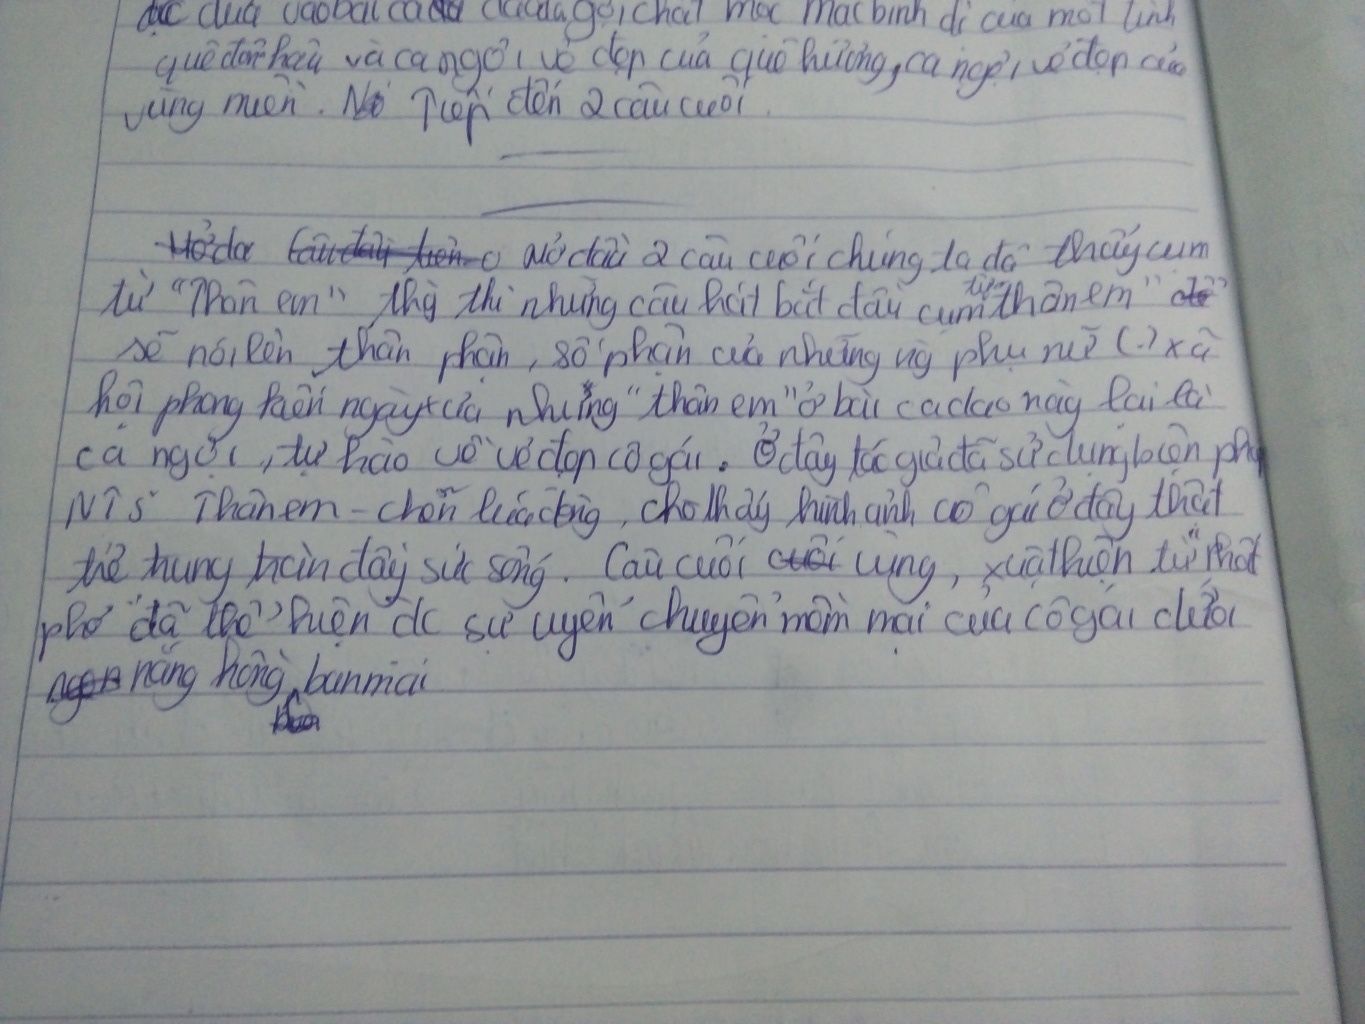 đc đưa vào bài ca dao đã gợi chất mộc mạc bình dị của một tình
quê đôn hậu và ca ngợi vẻ đẹp của quê hương, ca ngợi vẻ đẹp của
vùng miền. Tiếp đến 2 câu cuối.
Mở đầu 2 câu cuối chúng ta đã thấy cụm
từ "Thân em" thì những câu hát bắt đầu cụm từ "thân em"
sẽ nói lên thân phận, số phận của những ng phụ nữ (.) xã
hội phong kiến ngày xưa những "thân em" ở bài ca dao này lại là
ca ngợi, tự hào về vẻ đẹp cô gái. Ở đây tác giả đã sử dụng biện pháp
NTSS Thân em - chẽn lúa đòng, cho thấy hình ảnh cô gái ở đây thật
trẻ trung tràn đầy sức sống. Câu cuối cùng, xuất hiện từ "Phất
phơ" đã thể hiện đc sự uyển chuyển mềm mại của cô gái dưới
nắng hồng ban mai